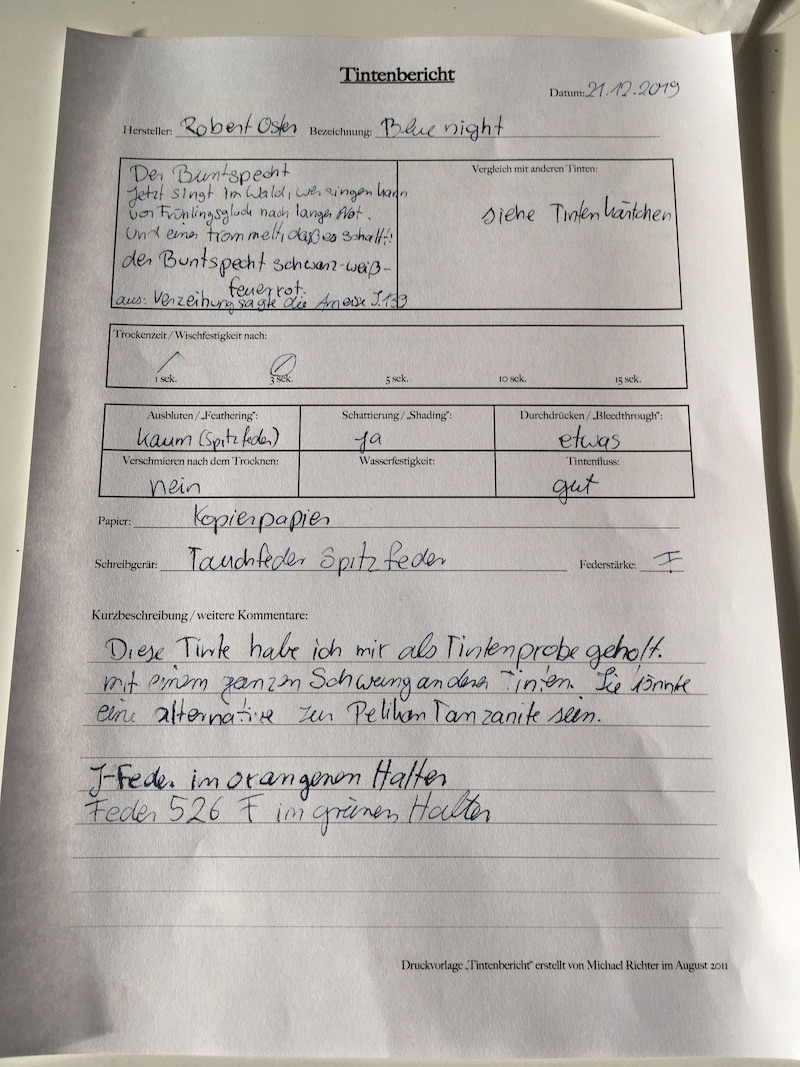 Tintenbericht
Datum: 21.12.2019
Hersteller: Robert Oster Bezeichnung: Blue night
Der Buntspecht
Jetzt singt im Wald, wer singen kann
vor Frühlingsglück nach langer Not.
und einer trommelt, daß es schallt:
der Buntspecht schwarz-weiß-
feuerrot.
aus: Verzeihung sagte die Ameise S.139
Vergleich mit anderen Tinten:
siehe Tintenkärtchen
Trockenzeit / Wischfestigkeit nach:
1 sek. 3 sek. 5 sek. 10 sek. 15 sek.
Ausbluten / „Feathering": Schattierung / „Shading": Durchdrücken / „Bleedthrough":
kaum (Spitzfeder) ja etwas
Verschmieren nach dem Trocknen: Wasserfestigkeit: Tintenfluss:
nein gut
Papier: Kopierpapier
Schreibgerät: Tauchfeder Spitzfeder Federstärke: F
Kurzbeschreibung / weitere Kommentare:
Diese Tinte habe ich mir als Tintenprobe geholt.
mit einem ganzen Schwung anderer Tinten. Sie könnte
eine alternative zur Pelikan Tanzanite sein.
J-Feder im orangenen Halter
Feder 526 F im grünen Halter
Druckvorlage „Tintenbericht" erstellt von Michael Richter im August 2011